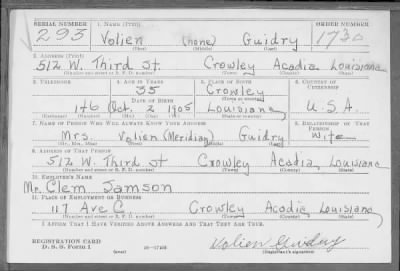 SERIAL NUMBER 1. NAME (Print) ORDER NUMBER
293 Volien (none) Guidry 1730
(First) (Middle) (Last)
2. ADDRESS (Print)
512 W. Third St. Crowley Acadia Louisiana
(Number and street or R. F. D. number) (Town) (County) (State)
3. TELEPHONE 4. AGE IN YEARS 5. PLACE OF BIRTH 6. COUNTRY OF CITIZENSHIP
35 Crowley
DATE OF BIRTH (Town or county)
146 Oct. 2 1905 Louisiana U.S.A.
7. NAME OF PERSON WHO WILL ALWAYS KNOW YOUR ADDRESS 8. RELATIONSHIP OF THAT PERSON
Mrs. Volien (Meridian) Guidry Wife
(Mr., Mrs., Miss) (First) (Middle) (Last)
9. ADDRESS OF THAT PERSON
512 W. Third St Crowley Acadia Louisiana
(Number and street or R. F. D. number) (Town) (County) (State)
10. EMPLOYER'S NAME
Mr. Clem Samson
11. PLACE OF EMPLOYMENT OR BUSINESS
117 Ave C. Crowley Acadia Louisiana
(Number and street or R. F. D. number) (Town) (County) (State)
I AFFIRM THAT I HAVE VERIFIED ABOVE ANSWERS AND THAT THEY ARE TRUE.
REGISTRATION CARD
D. S. S. Form 1 (over) 16—17105 Volien Guidry
(Registrant's signature)